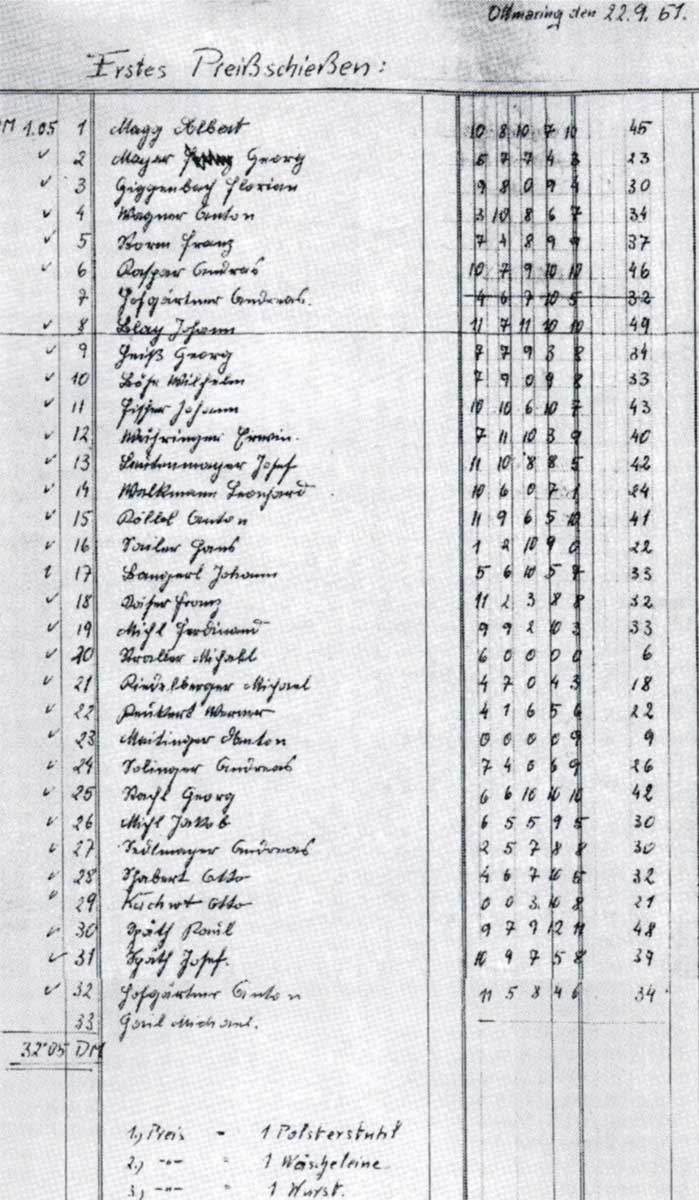 Ottmaring den 22.9.61.
Erstes Preißschießen:
DM 1.05 1 Magg Albert 10 8 10 7 10 45
✓ 2 Mayer Georg 5 7 7 4 3 23
✓ 3 Giggenbach Florian 9 8 0 9 4 30
✓ 4 Wagner Anton 3 10 8 6 7 34
✓ 5 Franz 7 4 8 9 9 37
✓ 6 Kaspar Andras 10 7 9 10 10 46
7 Hofgärtner Andreas. 4 6 7 10 5 32
✓ 8 Johann 11 7 11 10 10 49
✓ 9 Heiß Georg 7 7 9 3 8 34
✓ 10 Wilhelm 7 9 0 9 8 33
✓ 11 Fischer Johann 10 10 6 10 7 43
✓ 12 Erwin. 7 11 10 3 9 40
✓ 13 Lautenmayer Josef 11 10 8 8 5 42
✓ 14 Leonhard 10 6 0 7 1 24
✓ 15 Anton 11 9 6 5 10 41
✓ 16 Sailer Hans 1 2 10 9 0 22
17 Johann 5 6 10 5 7 33
✓ 18 Franz 11 2 3 8 8 32
✓ 19 Michl Ferdinand 9 9 2 10 3 33
✓ 20 6 0 0 0 0 6
✓ 21 Riedelberger Michael 4 7 0 4 3 18
✓ 22 Werner 4 1 6 5 6 22
✓ 23 Maitinger Anton 0 0 0 0 9 9
✓ 24 Solinger Andreas 7 4 0 6 9 26
✓ 25 Georg 6 6 10 10 10 42
✓ 26 Michl Jakob 6 5 5 9 5 30
✓ 27 Sedlmayer Andreas 2 5 7 8 8 30
✓ 28 Otto 4 6 7 10 5 32
✓ 29 Otto 0 0 3 10 8 21
✓ 30 Späth Paul 9 7 9 12 11 48
✓ 31 Späth Josef. 10 9 7 5 8 39
✓ 32 Hofgärtner Anton 11 5 8 4 6 34
33 Gail Michael.
32.05 DM
1.) Preis - 1 Polsterstuhl
2.) -"- " 1 Wäscheleine
3.) -"- " 1 Wurst.